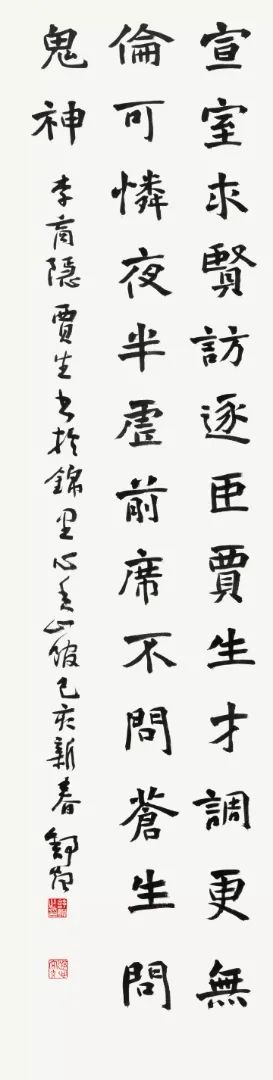 宣室求賢訪逐臣賈生才調更無
倫可憐夜半虛前席不問蒼生問
鬼神
李商隐賈生书於錦里心山館己亥新春鄒